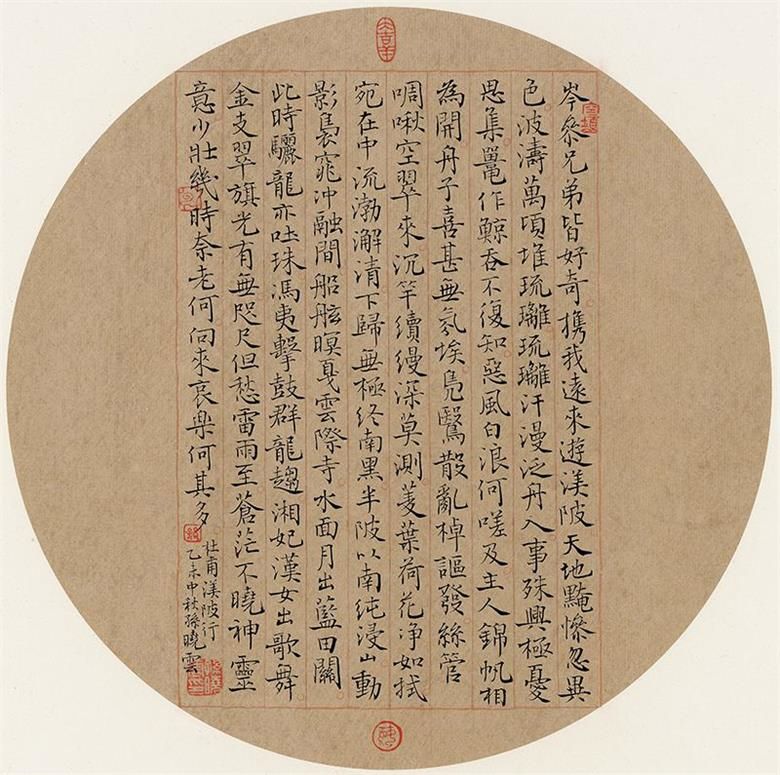 岑參兄弟皆好奇攜我遠來遊渼陂天地黤慘忽異
色波濤萬頃堆琉璃琉璃汗漫泛舟入事殊興極憂
思集鼉作鯨吞不復知惡風白浪何嗟及主人錦帆相
為開舟子喜甚無氛埃鳧鷖散亂棹謳發絲管
啁啾空翠來沉竿續縵深莫測菱葉荷花净如拭
宛在中流渤澥清下歸無極終南黑半陂以南純浸山動
影裊窕沖融間船舷暝戛雲際寺水面月出藍田關
此時驪龍亦吐珠馮夷擊鼓群龍趨湘妃漢女出歌舞
金支翠旗光有無咫尺但愁雷雨至蒼茫不曉神靈
意少壯幾時奈老何向來哀樂何其多
杜甫渼陂行
乙未中秋孫曉雲
大吉羊